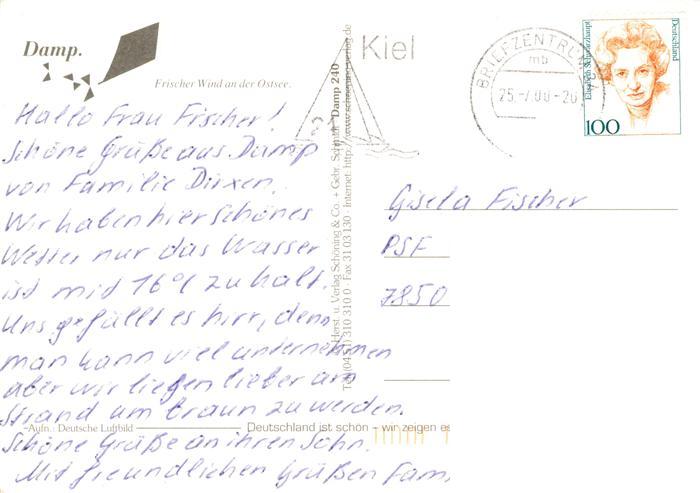 Damp.
Frischer Wind an der Ostsee.
Hallo Frau Fischer!
Schöne Grüße aus Damp
von Familie Dirxen.
Wir haben hier schönes
Wetter nur das Wasser
ist mit 16°C zu kalt.
Uns gefällt es hirr, denn
man kann viel unternehmen
aber wir liegen lieber am
Strand um braun zu werden.
Schöne Grüße an ihren Sohn.
Mit freundlichen Grüßen Fam.
Aufn.: Deutsche Luftbild
Deutschland ist schön – wir zeigen es
Herst. u. Verlag Schöning & Co. + Gebr. Schmidt · Damp 240
Tel. (04 51) 310 310 0 · Fax 31 03 130 · internet: http://www.schoening-verlag.de
Kiel
BRIEFZENTRUM
mb
25.-7.00-20
Elisabeth Schwarzhaupt
Deutschland
100
Gisela Fischer
PSF
7850